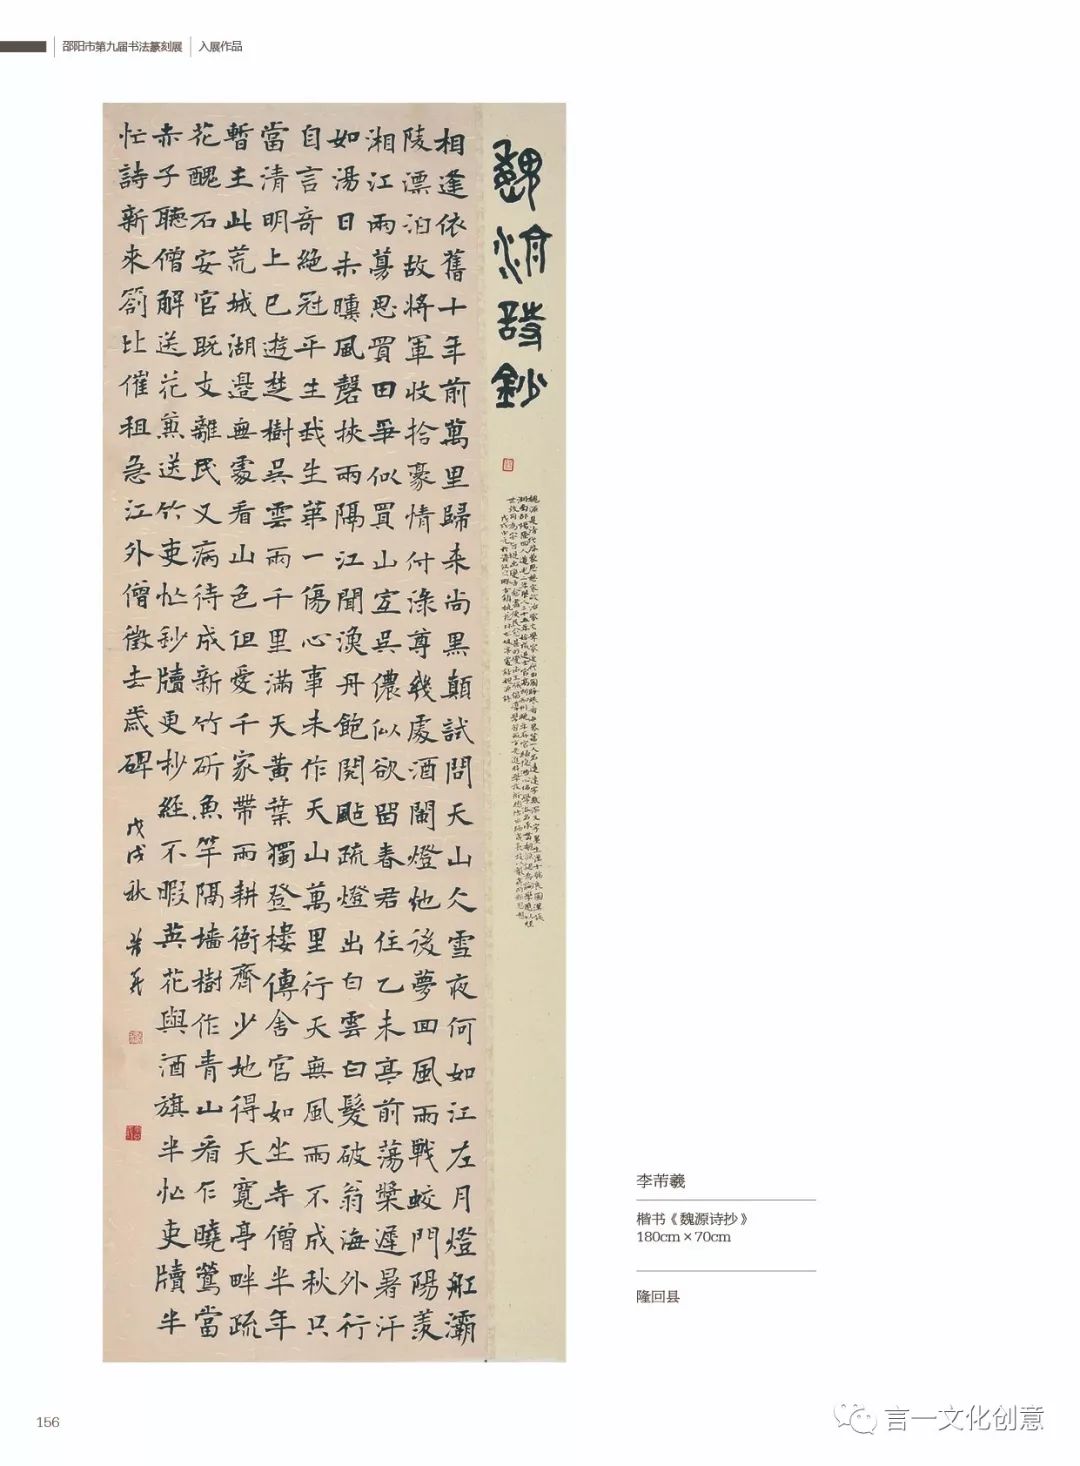 邵阳市第九届书法篆刻展 入展作品
魏源詩鈔
相逢依舊十年前萬里歸来尚黑顛試問天山仌雪夜何如江左月燈舡灞
陵漂泊故將軍收拾豪情付淥尊幾處酒闌燈灺後夢回風雨戰蛟門陽羨
湘江兩募思買田爭似買山宜吳儂似欲留春君住乙未亭前蕩槳遲暑汗
如湯日未曛風磬挾雨隔江聞漁丹飽閱颭疏燈出白雲白髮破翁海外行
自言奇絕冠平生我生第一傷心事未作天山萬里行天無風雨不成秋只
當清明上巳遊楚樹吳雲雨千里滿天黃葉獨登樓傳舍官如坐寺僧半年
暫主此荒城湖邊無處看山色但愛千家帶雨耕衙齊少地得天寬亭畔疏
花醜石安官既支離民又病待成新竹斫魚竿隔墻樹作青山看乍曉鶯當
赤子聽僧解送花兼送竹吏忙鈔牘更抄經不暇英花與酒旗半忙吏牘半
忙詩新来劄比催租急江外僧徵去歲碑
戊戌秋 芾羲
李芾羲
楷书《魏源诗抄》
180cm×70cm
隆回县
156
言一文化创意